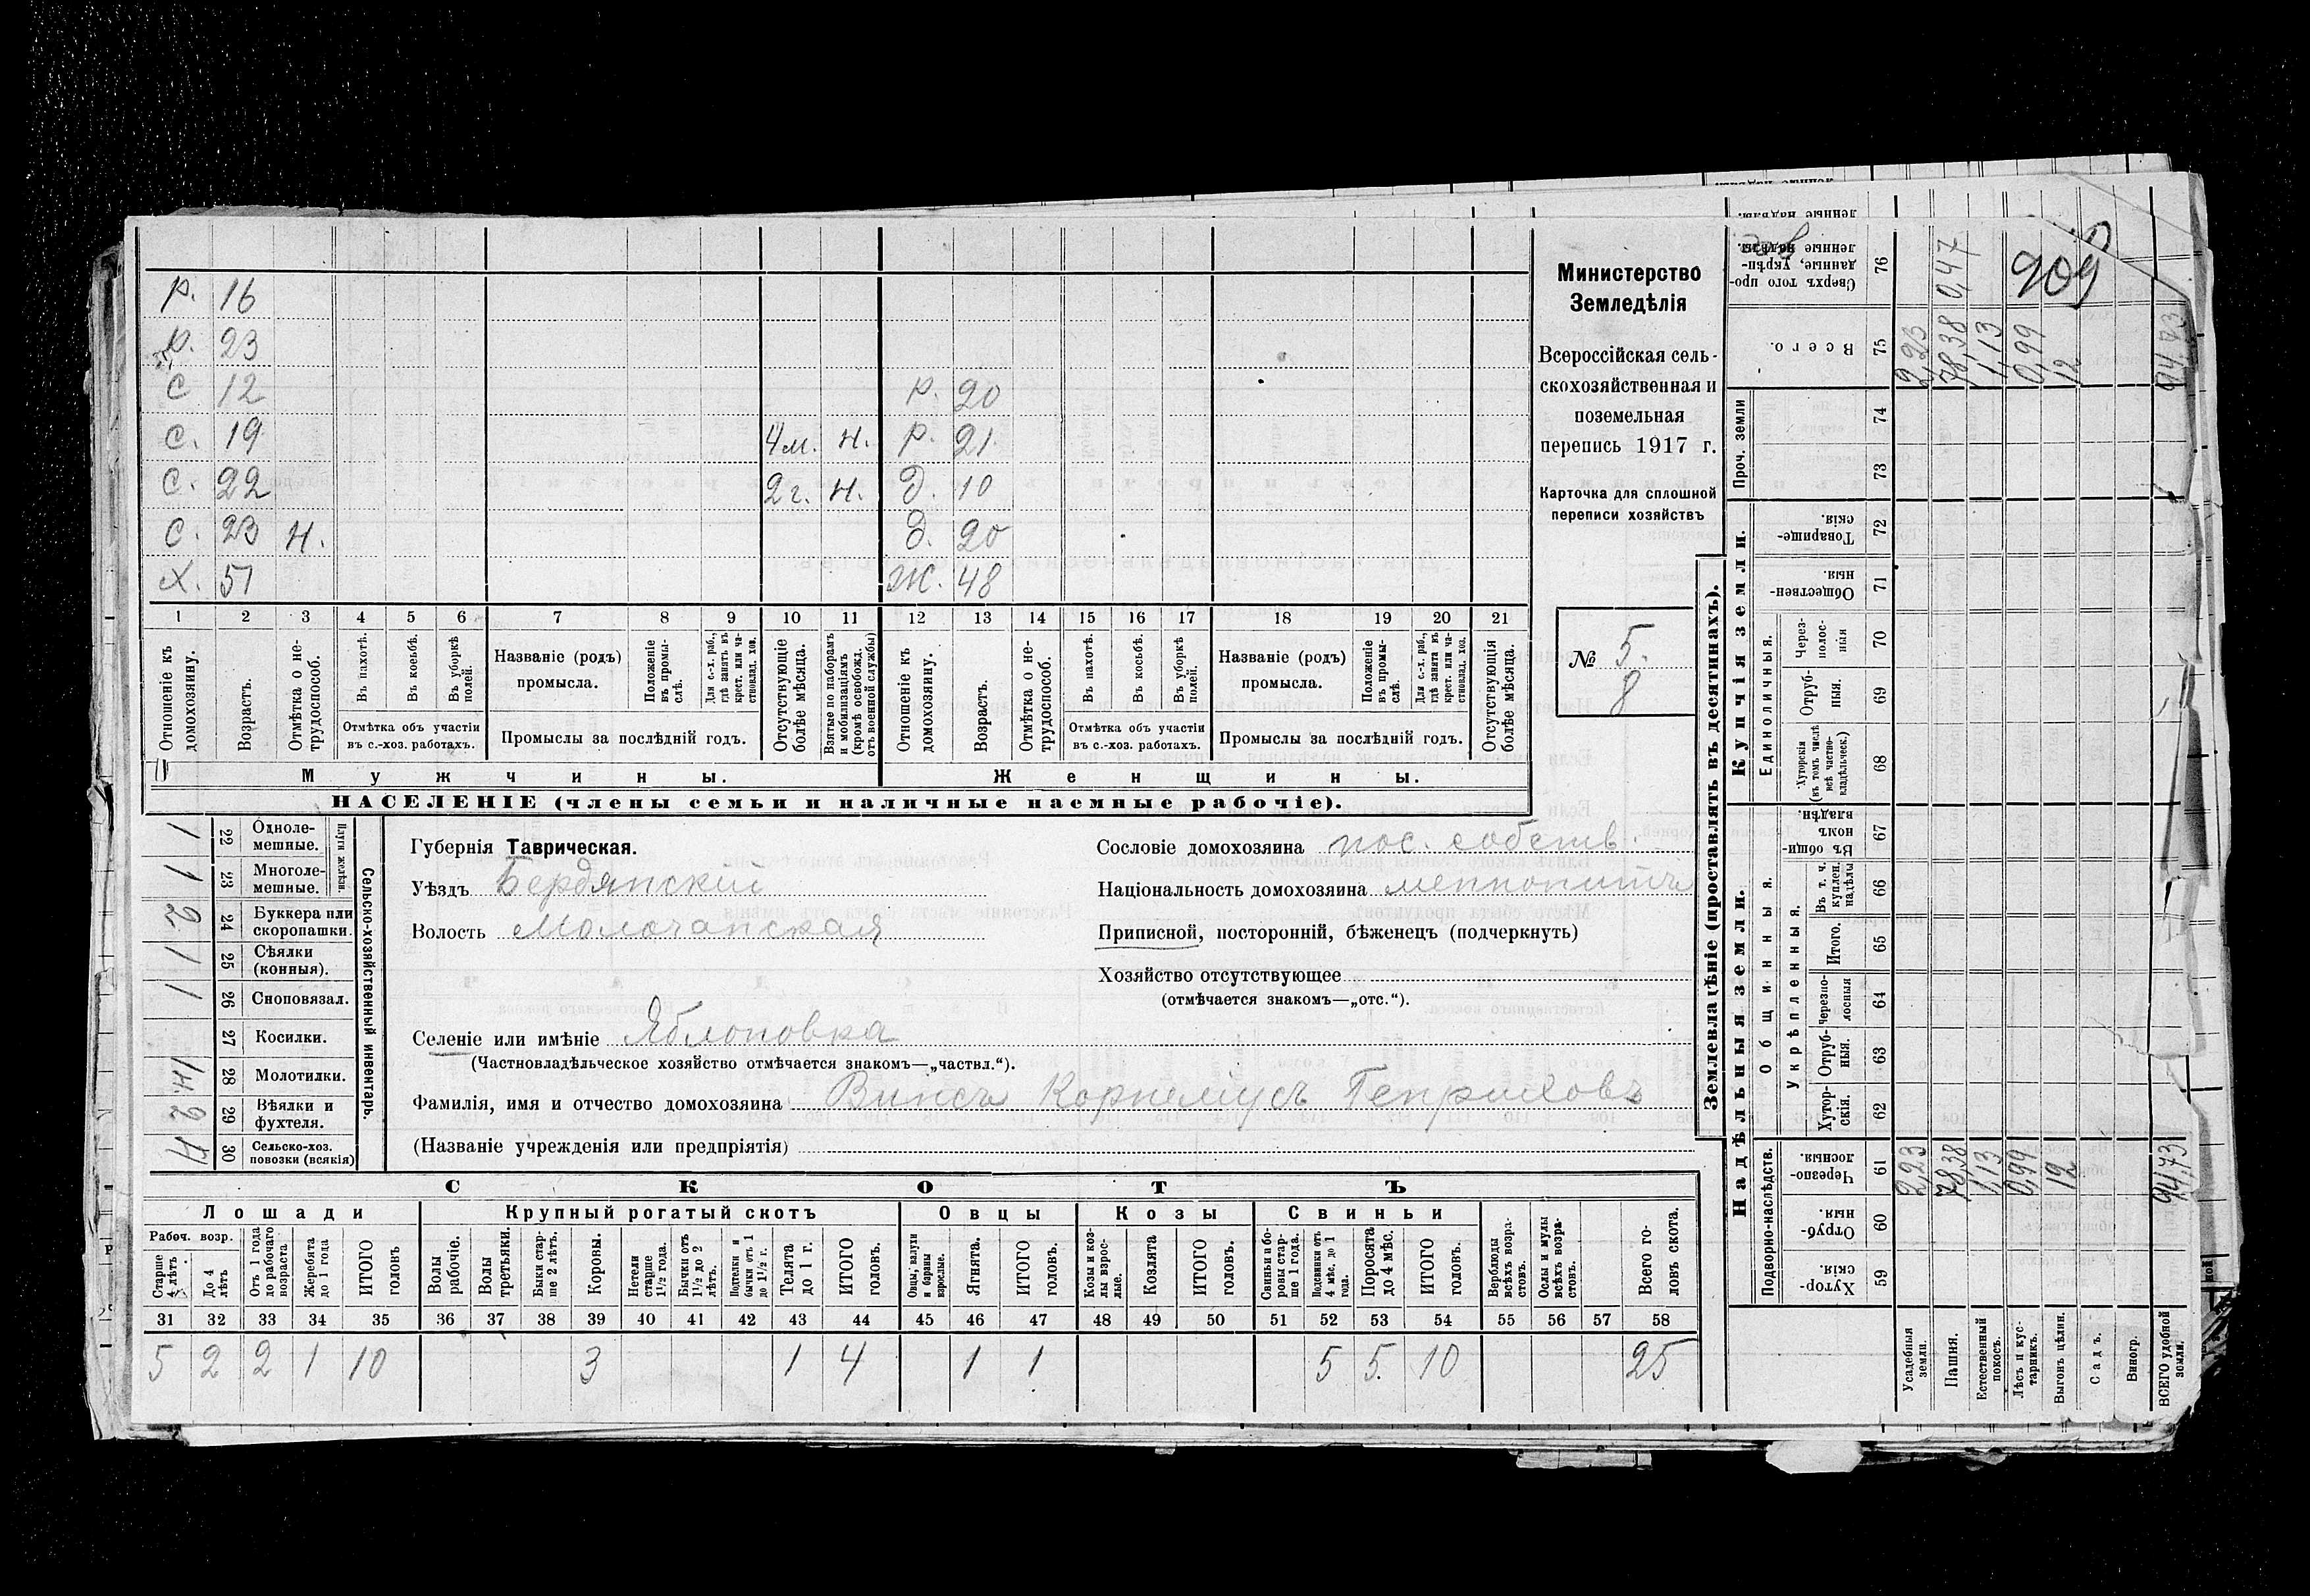 Р. 16
Р. 23
С 12 Р. 20
С. 19 4 м. Н. Р. 21
С. 22 2 г. Н. Д. 10
С. 23 Н. Д. 20
Х. 51 Ж. 48
1 2 3 4 5 6 7 8 9 10 11 12 13 14 15 16 17 18 19 20 21
Отношеніе къ домохозяину.
Возрастъ.
Отмѣтка о не-трудоспособ.
Въ пахотѣ.
Въ косьбѣ.
Въ уборкѣ полей.
Отмѣтка объ участіи
въ с.-хоз. работахъ.
Названіе (родъ)
промысла.
Положеніе въ промы-слѣ.
Для с.-х. раб., гдѣ занятъ въ крест. или ча-стновлад. хоз.
Промыслы за послѣдній годъ.
Отсутствующіе болѣе мѣсяца.
Взятые по наборамъ и мобилизаціямъ (кромѣ освобожд. отъ военной службы)
Отношеніе къ домохозяину.
Возрастъ.
Отмѣтка о не-трудоспособ.
Въ пахотѣ.
Въ косьбѣ.
Въ уборкѣ полей.
Отмѣтка объ участіи
въ с.-хоз. работахъ.
Названіе (родъ)
промысла.
Положеніе въ промы-слѣ.
Для с.-х. раб., гдѣ занята въ крест. или ча-стновлад. хоз.
Промыслы за послѣдній годъ.
Отсутствующія болѣе мѣсяца.
Мужчины. Женщины.
НАСЕЛЕНІЕ (члены семьи и наличные наемные рабочіе).
Министерство
Земледѣлія
Всероссійская сель-
скохозяйственная и
поземельная
перепись 1917 г.
Карточка для сплошной
переписи хозяйствъ
№ 5.
8
Сельско-хозяйственный инвентарь.
Плуги желѣзн.
1 22 Одноле-мешные.
1 23 Многоле-мешные.
2 24 Буккера или скоропашки.
1 25 Сѣялки (конныя).
1 26 Сноповязал.
27 Косилки.
1 н. 28 Молотилки.
2 29 Вѣялки и фухтеля.
4 30 Сельско-хоз. повозки (всякія)
Губернія Таврическая.
Уѣздъ Бердянский
Волость Молочанская
Сословіе домохозяина пос. собств.
Національность домохозяина меннонитъ
Приписной, посторонній, бѣженецъ (подчеркнуть)
Хозяйство отсутствующее
(отмѣчается знакомъ—„отс.“).
Селеніе или имѣніе Яблоновка
(Частновладѣльческое хозяйство отмѣчается знакомъ—„частвл.“).
Фамилія, имя и отчество домохозяина Винсъ Корнеліусъ Генриховъ
(Названіе учрежденія или предпріятія)
СКОТЪ
Лошади Крупный рогатый скотъ Овцы Козы Свиньи
Рабоч. возр.
Старше 4 лѣтъ
До 4 лѣтъ
Отъ 1 года до рабочаго возраста
Жеребята до 1 года
ИТОГО головъ
Волы рабочіе.
Волы третьяки.
Быки стар-ше 2 лѣтъ.
Коровы.
Нетели старше 1½ года.
Бычки отъ 1½ до 2 лѣтъ.
Подтелки и бычки отъ 1 до 1½ г.
Телята до 1 г.
ИТОГО головъ.
Овцы, валухи и бараны взрослые.
Ягнята.
ИТОГО головъ.
Козы и коз-лы взрос-лые.
Козлята
ИТОГО головъ.
Свиньи и бо-ровы стар-ше 1 года.
Подсвинки отъ 4 мѣс. до 1 года.
Поросята до 4 мѣс.
ИТОГО головъ.
Верблюды всѣхъ возра-стовъ.
Ослы и мулы всѣхъ возра-стовъ.
Всего го-ловъ скота.
31 32 33 34 35 36 37 38 39 40 41 42 43 44 45 46 47 48 49 50 51 52 53 54 55 56 57 58
5 2 2 1 10 3 1 4 1 1 5 5. 10 25
Землевладѣніе (проставлять въ десятинахъ).
Надѣльныя земли. Купчія земли. Проч. земли
Подворно-наслѣдств.
Общинныя.
Укрѣпленныя.
Единоличныя.
Хутор-скія. 59
Отруб-ныя. 60
Черезпо-лосныя. 61
Хутор-скія. 62
Отруб-ныя. 63
Черезпо-лосныя 64
Итого. 65
Въ т. ч. куплен. надѣлы 66
Въ общи-номъ владѣн. 67
Хуторскія (въ томъ числѣ всѣ частно-владѣльческ.) 68
Отруб-ныя. 69
Через-полос-ныя 70
Обществен-ныя. 71
Товарище-скія. 72
73
74
Всего. 75
Сверхъ того про-данные, укрѣп-ленные надѣлы. 76
909
Усадебныя земли. 2,23 2,23
Пашня. 78,38 78,38 0,47
Естественный покосъ. 1,13 1,13
Лѣсъ и кус-тарникъ. 0,99 0,99
Выгонъ цѣлин. 12 12
Садъ.
Виногр.
ВСЕГО удобной земли. 94,73 94,73